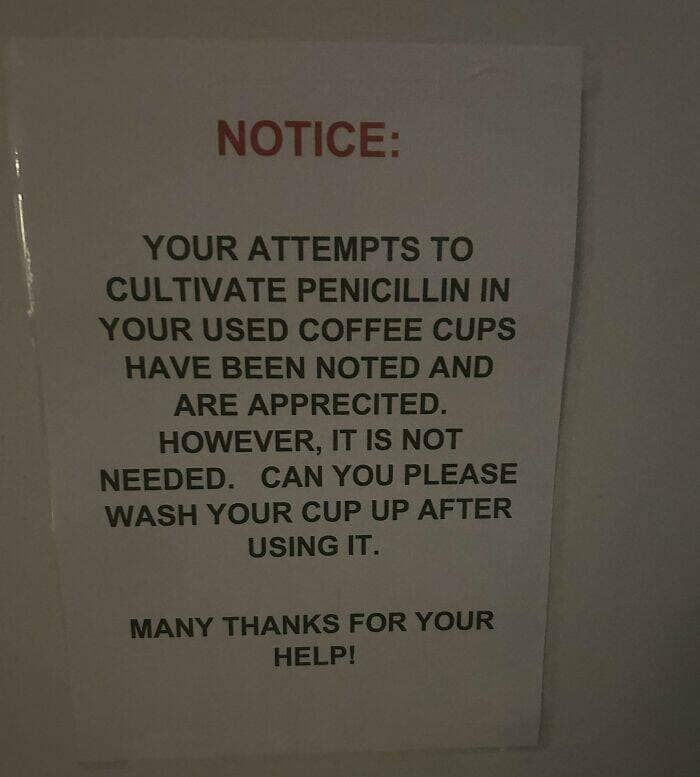 NOTICE:
YOUR ATTEMPTS TO
CULTIVATE PENICILLIN IN
YOUR USED COFFEE CUPS
HAVE BEEN NOTED AND
ARE APPRECITED.
HOWEVER, IT IS NOT
NEEDED.   CAN YOU PLEASE
WASH YOUR CUP UP AFTER
USING IT.
MANY THANKS FOR YOUR
HELP!